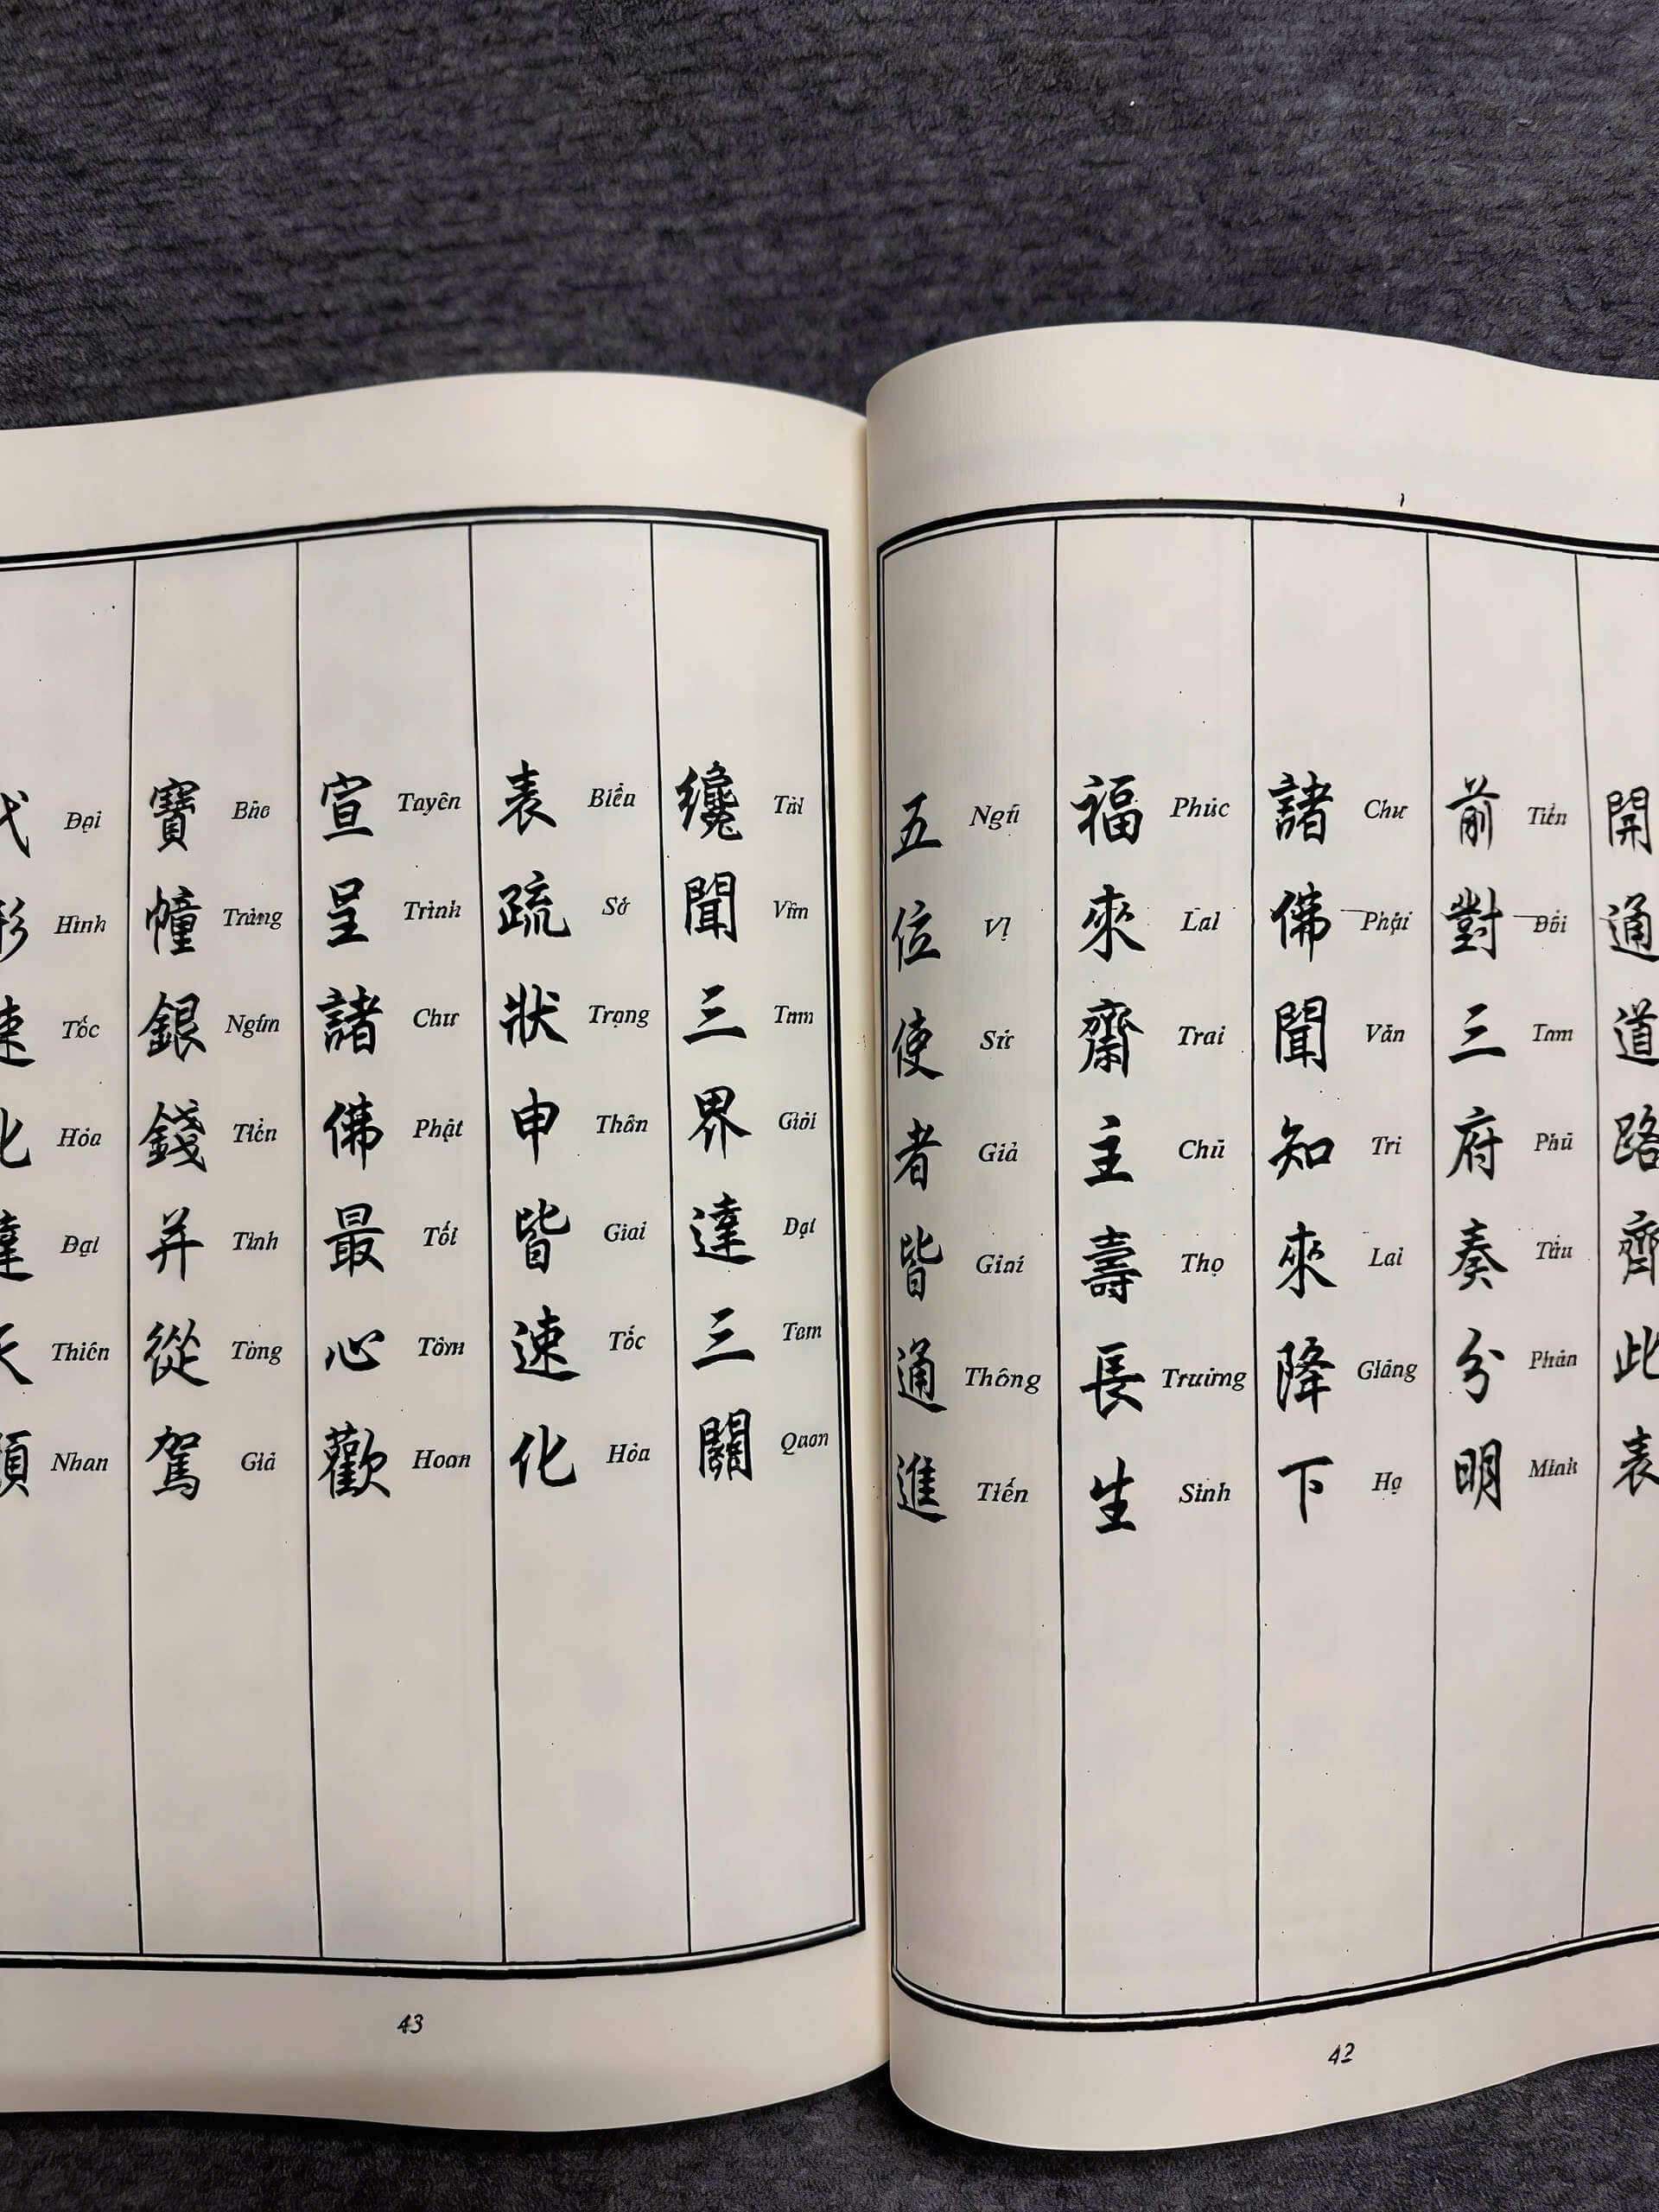 開通道路齊此表
前 Tiền 對 Đối 三 Tam 府 Phủ 奏 Tấu 分 Phân 明 Minh
諸 Chư 佛 Phật 聞 Văn 知 Tri 來 Lai 降 Giáng 下 Hạ
福 Phúc 來 Lai 齋 Trai 主 Chủ 壽 Thọ 長 Trường 生 Sinh
五 Ngũ 位 Vị 使 Sứ 者 Giả 皆 Giai 通 Thông 進 Tiến
42
纔 Tài 聞 Văn 三 Tam 界 Giới 達 Đạt 三 Tam 關 Quan
表 Biểu 疏 Sớ 狀 Trạng 申 Thân 皆 Giai 速 Tốc 化 Hóa
宣 Tuyên 呈 Trình 諸 Chư 佛 Phật 最 Tối 心 Tâm 歡 Hoan
寶 Bảo 幢 Tràng 銀 Ngân 錢 Tiền 并 Tinh 從 Tòng 駕 Giá
Đại Hình 速 Tốc 化 Hóa 達 Đạt Thiên Nhan
43